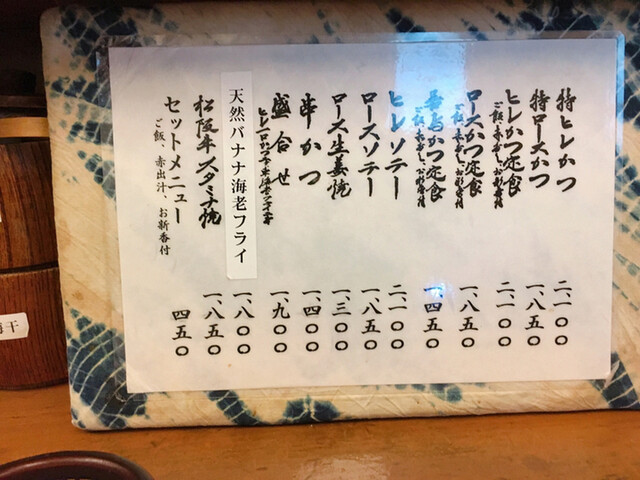 特ヒレかつ 二、一〇〇
特ロースかつ 一、八五〇
ヒレかつ定食 二、一〇〇
ご飯、赤だし、お新香付
ロースかつ定食 一、八五〇
ご飯、赤だし、お新香付
かつ定食 一、四五〇
ご飯、赤だし、お新香付
ヒレソテー 二、一〇〇
ロースソテー 一、八五〇
ロース生姜焼 一、三〇〇
串かつ 一、四〇〇
盛合せ 一、九〇〇
天然バナナ海老フライ 一、八〇〇
松阪牛スタミナ焼 一、八五〇
セットメニュー 四五〇
ご飯、赤出汁、お新香付
梅干